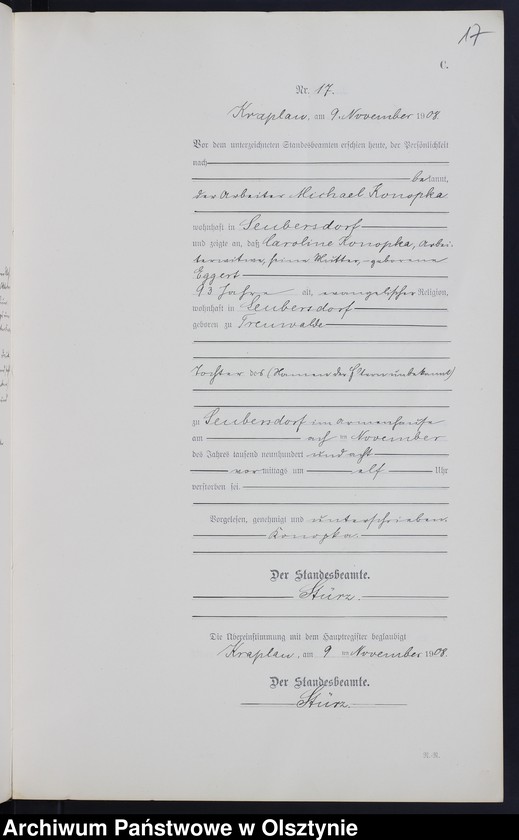 17
C.
Nr. 17.
Kraplau, am 9. November 1908.
Vor dem unterzeichneten Standesbeamten erschien heute, der Persönlichkeit
nach
bekannt,
der Arbeiter Michael Konopka
wohnhaft in Seubersdorf
und zeigte an, daß Caroline Konopka, Arbei-
terwitwe, seine Mutter, geborene
Eggert
93 Jahre alt, evangelischer Religion,
wohnhaft in Seubersdorf
geboren zu Treuwalde
Tochter des (Namen der Eltern unbekannt)
zu Seubersdorf im Armenhause
am acht ten November
des Jahres tausend neunhundert und acht
vormittags um elf Uhr
verstorben sei.
Vorgelesen, genehmigt und unterschrieben.
Konopka.
Der Standesbeamte.
Stürz.
Die Übereinstimmung mit dem Hauptregister beglaubigt
Kraplau, am 9 ten November 1908.
Der Standesbeamte.
Stürz.
Archiwum Państwowe w Olsztynie